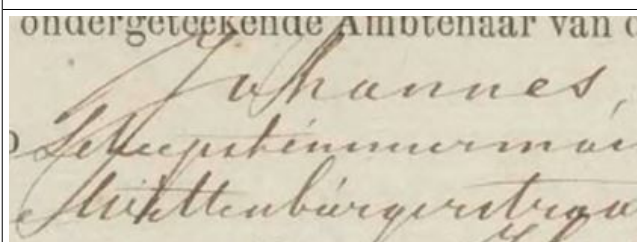 ondergeteekende Ambtenaar van d
Johannes,
Scheepstimmerman
Wittenburgerstraa